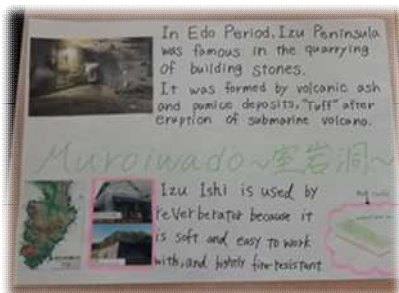 In Edo Period, Izu Peninsula
was famous in the quarrying
of building stones.
It was formed by volcanic ash
and pumice deposits, "Tuff" after
eruption of submarine volcano.
Muroiwado~室岩洞~
Izu Ishi is used by
reverberator because it
is soft and easy to work
with, and highly fire-resistant